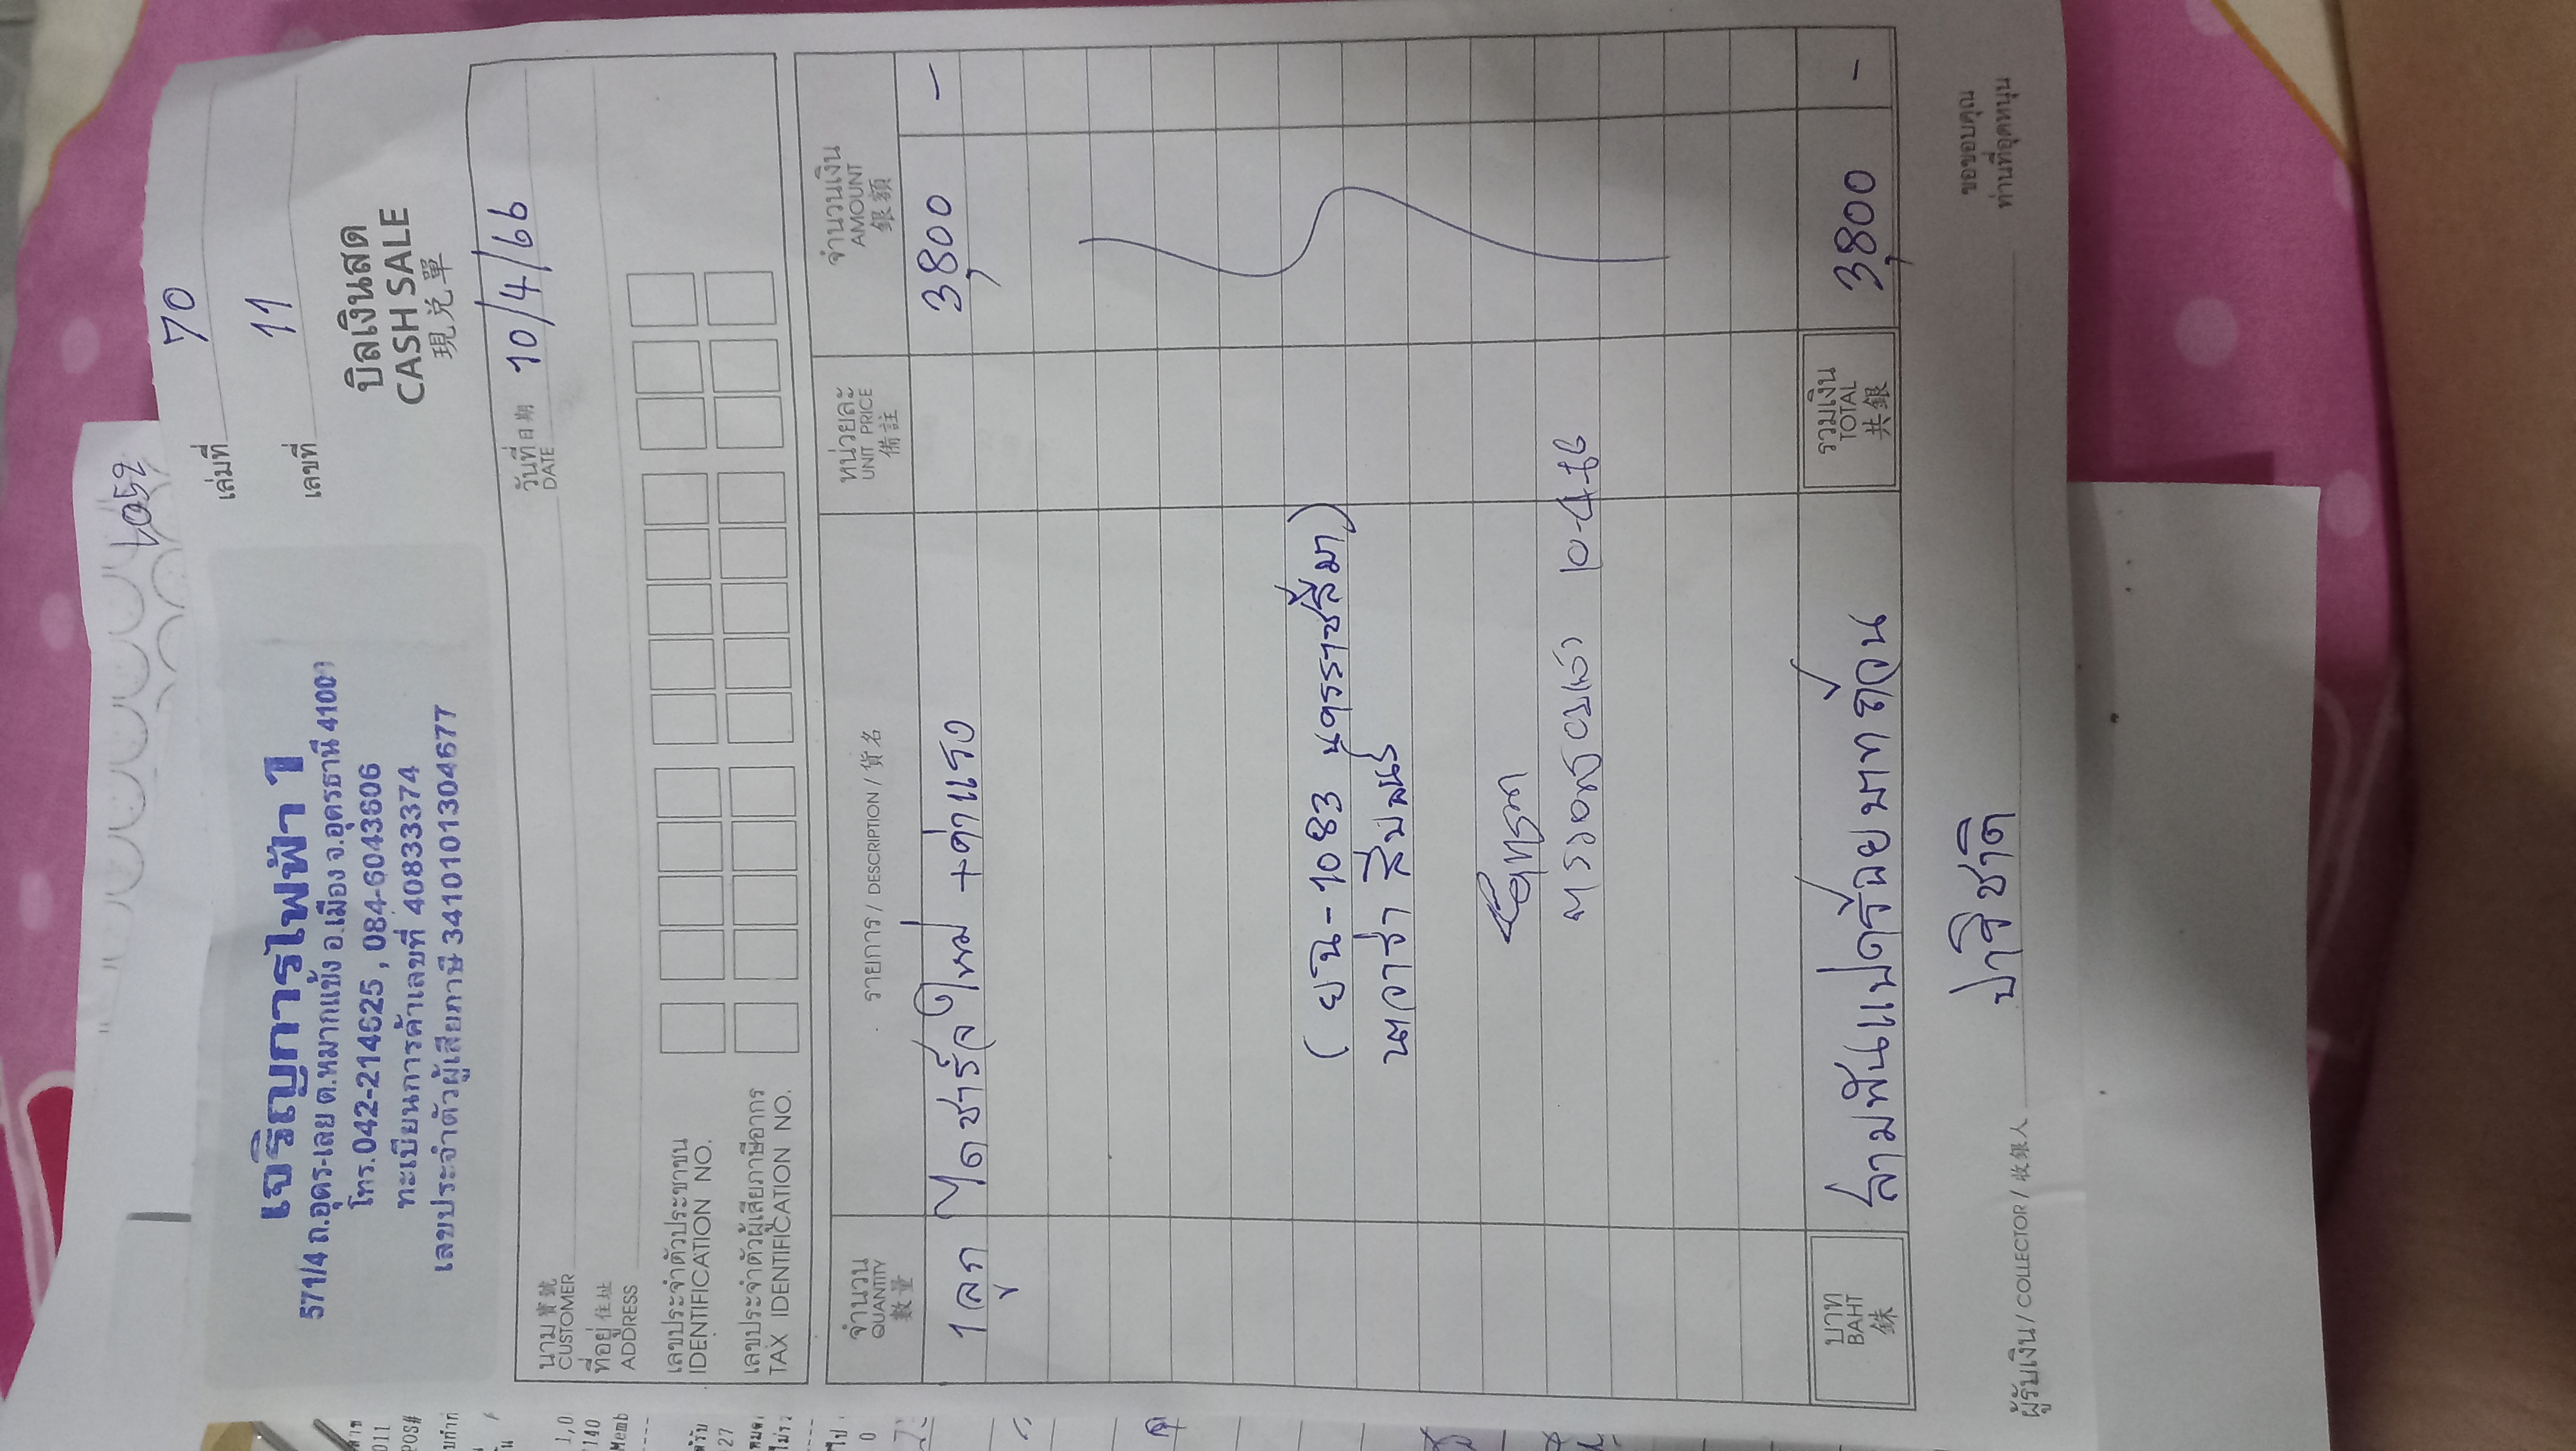 เล่มที่ 70
เลขที่ 11
เจริญการไฟฟ้า 1
571/4 ถ.อุดร-เลย ต.หมากแข้ง อ.เมือง จ.อุดรธานี 41000
โทร.042-214625 , 084-6043606
ทะเบียนการค้าเลขที่ 40833374
เลขประจำตัวผู้เสียภาษี 3410101304677
บิลเงินสด
CASH SALE
現兌單
นาม寶號
CUSTOMER
วันที่日期 10/4/66
DATE
ที่อยู่住址
ADDRESS
เลขประจำตัวประชาชน
IDENTIFICATION NO.
เลขประจำตัวผู้เสียภาษีอากร
TAX IDENTIFICATION NO.
จำนวน
QUANTITY
數量
รายการ / DESCRIPTION / 貨名
หน่วยละ
UNIT PRICE
備註
จำนวนเงิน
AMOUNT
銀額
1 ลูก ไดชาร์จใหม่ +ค่าแรง 3,800 -
( ยฉ-1083 นครราชสีมา)
10-4-66
บาท
BAHT
銖
สามพันแปดร้อยบาทถ้วน
รวมเงิน
TOTAL
共銀
3,800 -
ผู้รับเงิน / COLLECTOR / 收銀人 ปาริชาติ
ขอขอบคุณ
ท่านที่อุดหนุน